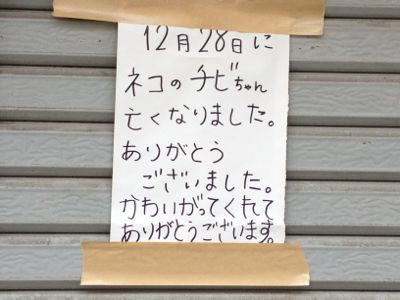 12月28日に
ネコのチビちゃん
亡くなりました。
ありがとう
ございました。
かわいがってくれて
ありがとうございます。